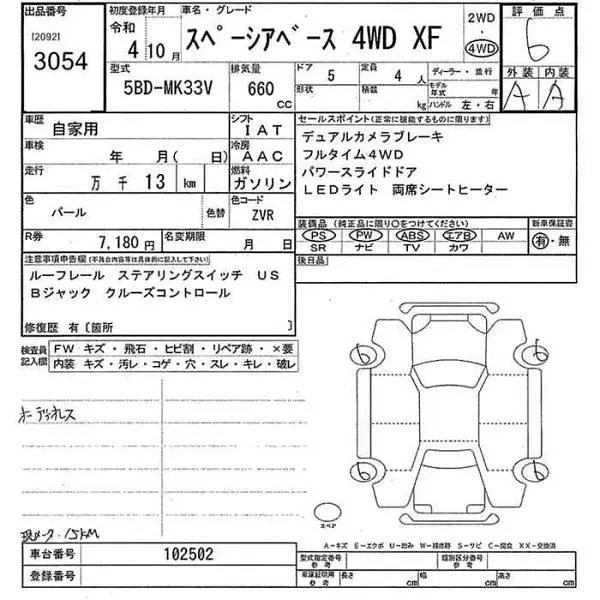 出品番号 初度登録年月 車名・グレード 2WD 評価点
[2092] 令和 ・
3054 4 10月 スペーシアベース 4WD XF 4WD 6
型式 排気量 ドア 定員 ディーラー・並行 外装 内装
5BD-MK33V 660 cc 5 4人 A A
形状 積載 kg モデル年式 年 ハンドル 左・右
車歴 自家用 シフト IAT セールスポイント(正常に機能するものに限ります)
車検 年 月( 日) 冷房 AAC デュアルカメラブレーキ
走行 万 千 13 km 燃料 ガソリン フルタイム4WD
パワースライドドア
LEDライト 両席シートヒーター
色 パール 色替 色コード ZVR
装備品(純正品に限り○をつけてください) 新車保証書
R券 7,180円 名変期限 月 日 PS PW ABS エアB AW 有・無
SR ナビ TV カワ
注意事項申告欄(不具合内容等は具体的に記入して下さい) 後日品
ルーフレール ステアリングスイッチ US
Bジャック クルーズコントロール
修復歴 有〔箇所
検査員記入欄 FW キズ・飛石・ヒビ割・リペア跡・×要
内装 キズ・汚レ・コゲ・穴・スレ・キレ・破レ
6 6
オーディオレス
6 6
スペア
現メーター 15KM
A-キズ E-エクボ U-凹み W-補修跡 S-サビ C-腐食 XX-交換済
車台番号 102502 型式指定番号 参考 類別区分番号 参考
登録番号 車庫証明用 参考 長さ cm 幅 cm 高さ cm